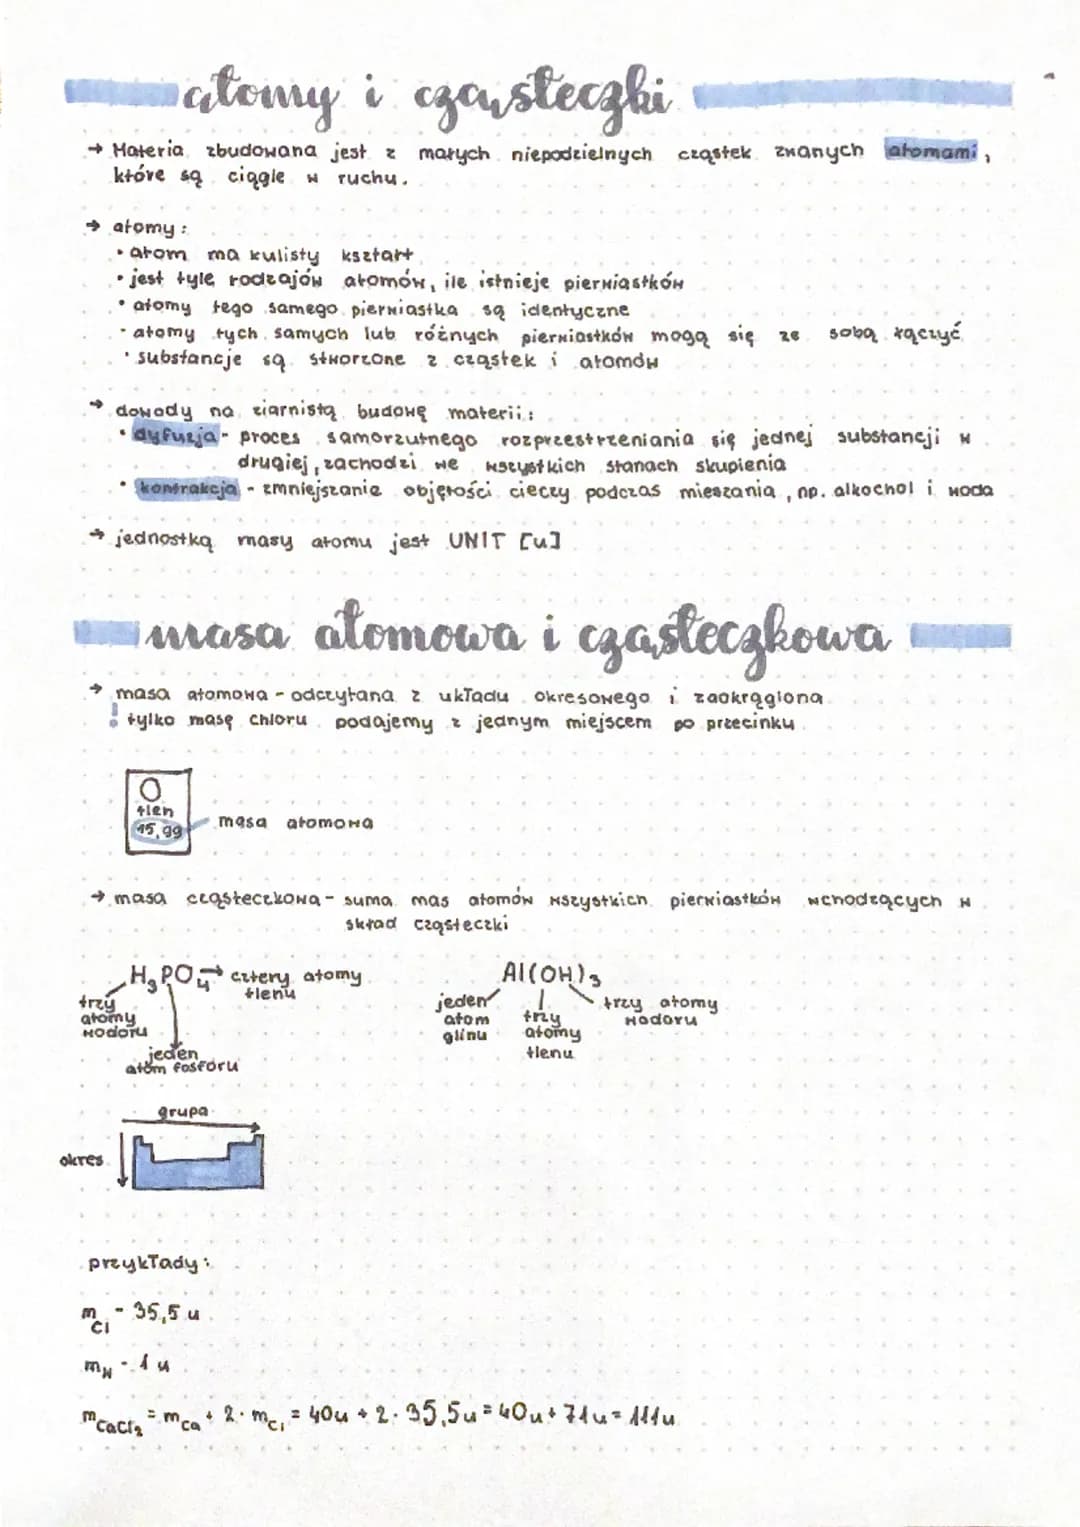 atomy i cząsteczki
→ Materia zbudowana jest z małych niepodzielnych cząstek zwanych atomami,
które są ciągle w ruchu.
→ atomy:
• atom ma kulisty kształt
• jest tyle rodzajów atomów, ile istnieje pierwiastków
• atomy tego samego pierwiastka są identyczne
• atomy tych samych lub różnych pierwiastków mogą się ze sobą łączyć
• substancje są stworzone z cząstek i atomów
→ dowody na ziarnistą budowę materii:
• dyfuzja - proces samorzutnego rozprzestrzeniania się jednej substancji w
drugiej, zachodzi we wszystkich stanach skupienia
• kontrakcja - zmniejszanie objętości cieczy podczas mieszania, np. alkochol i woda
→ jednostką masy atomu jest UNIT [u]
masa atomowa i cząsteczkowa
→ masa atomowa - odczytana z układu okresowego i zaokrąglona
! tylko masę chloru podajemy z jednym miejscem po przecinku
O
tlen
15,99
masa atomowa
→ masa cząsteczkowa - suma mas atomów wszystkich pierwiastków wchodzących w
skład cząsteczki
H₃PO₄ → cztery atomy
tlenu
trzy
atomy
wodoru
jeden
atom fosforu
Al(OH)₃
jeden
atom
glinu
trzy
atomy
tlenu
trzy atomy
wodoru
grupa
okres
przykłady:
m_Cl - 35,5 u
m_H - 1 u
m_CaCl₂ = m_Ca + 2 · m_Cl = 40u + 2 · 35,5u = 40u + 71u = 111u